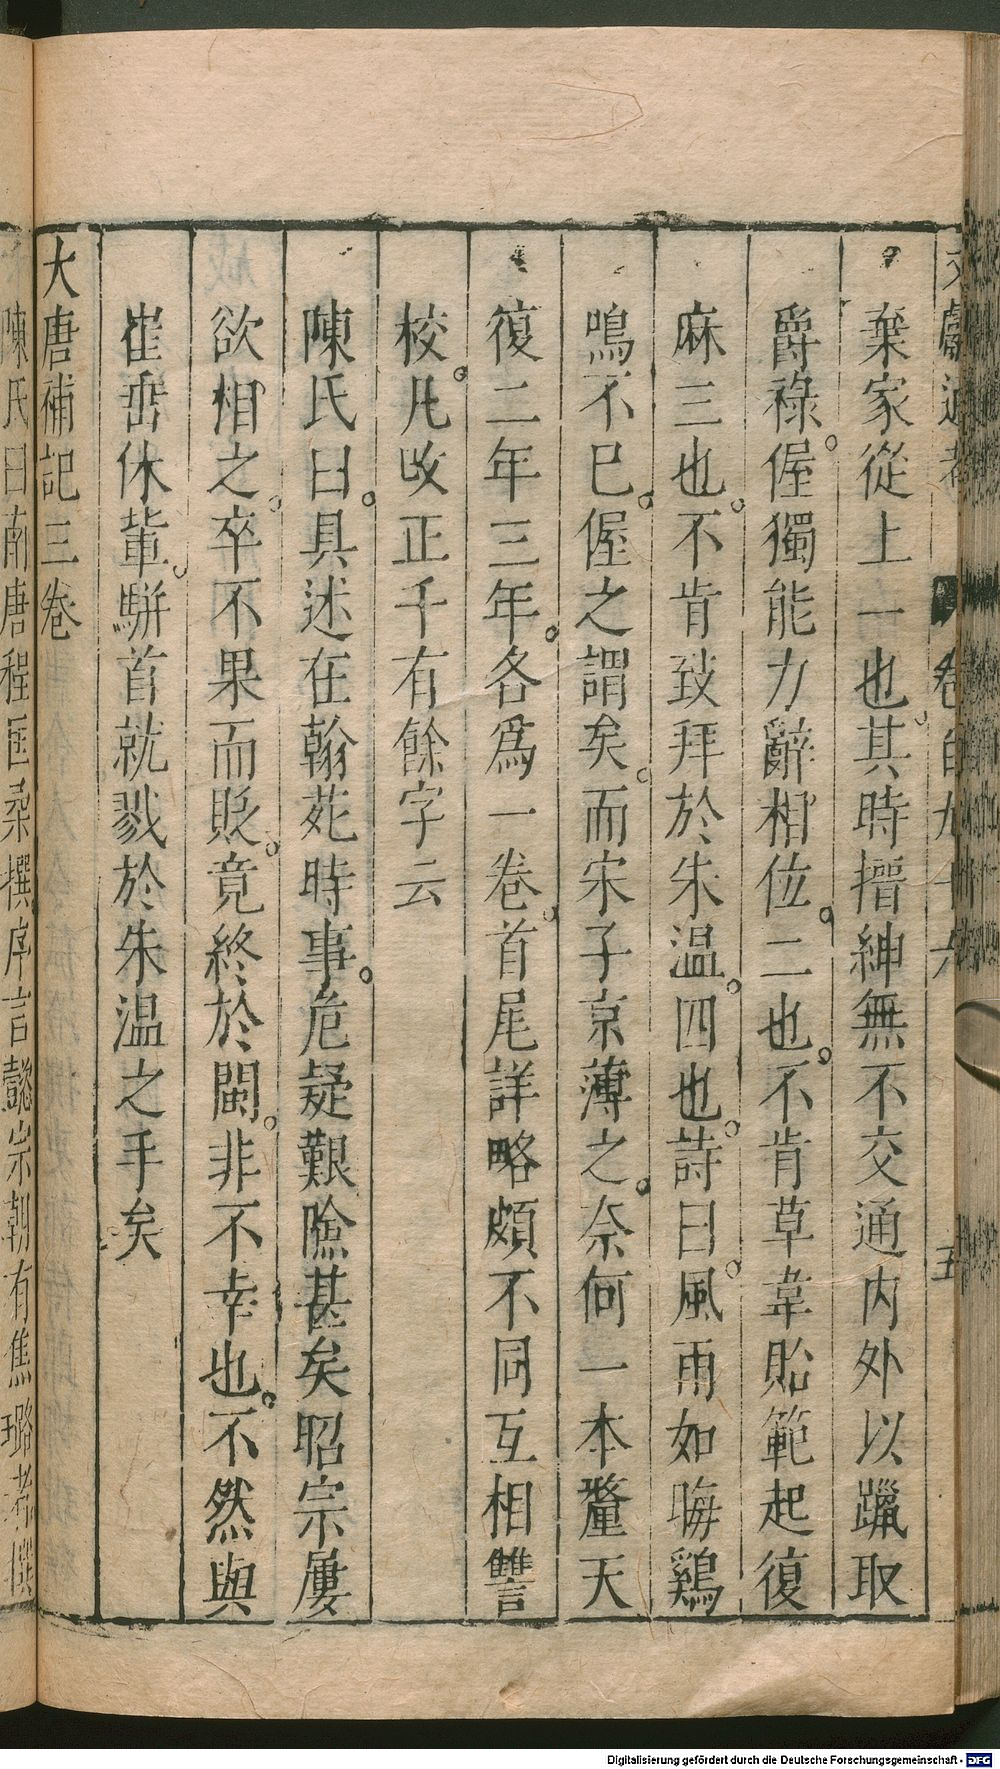 文獻通考 卷百九十六 五
棄家從上一也其時搢紳無不交通内外以躐取
爵祿偓獨能力辭相位二也不肯草韋貽範起復
麻三也不肯致拜於朱温四也詩曰風雨如晦鷄
鳴不已偓之謂矣而宋子京薄之奈何一本釐天
復二年三年各爲一卷首尾詳略頗不同互相讐
校凡攺正千有餘字云
陳氏曰具述在翰苑時事危疑艱險甚矣昭宗屢
欲相之卒不果而貶竟終於閩非不幸也不然與
崔垂休輩駢首就戮於朱温之手矣
大唐補記三卷
陳氏曰南唐程匡柔撰序言懿宗朝有焦璐者撰
Digitalisierung gefördert durch die Deutsche Forschungsgemeinschaft - DFG